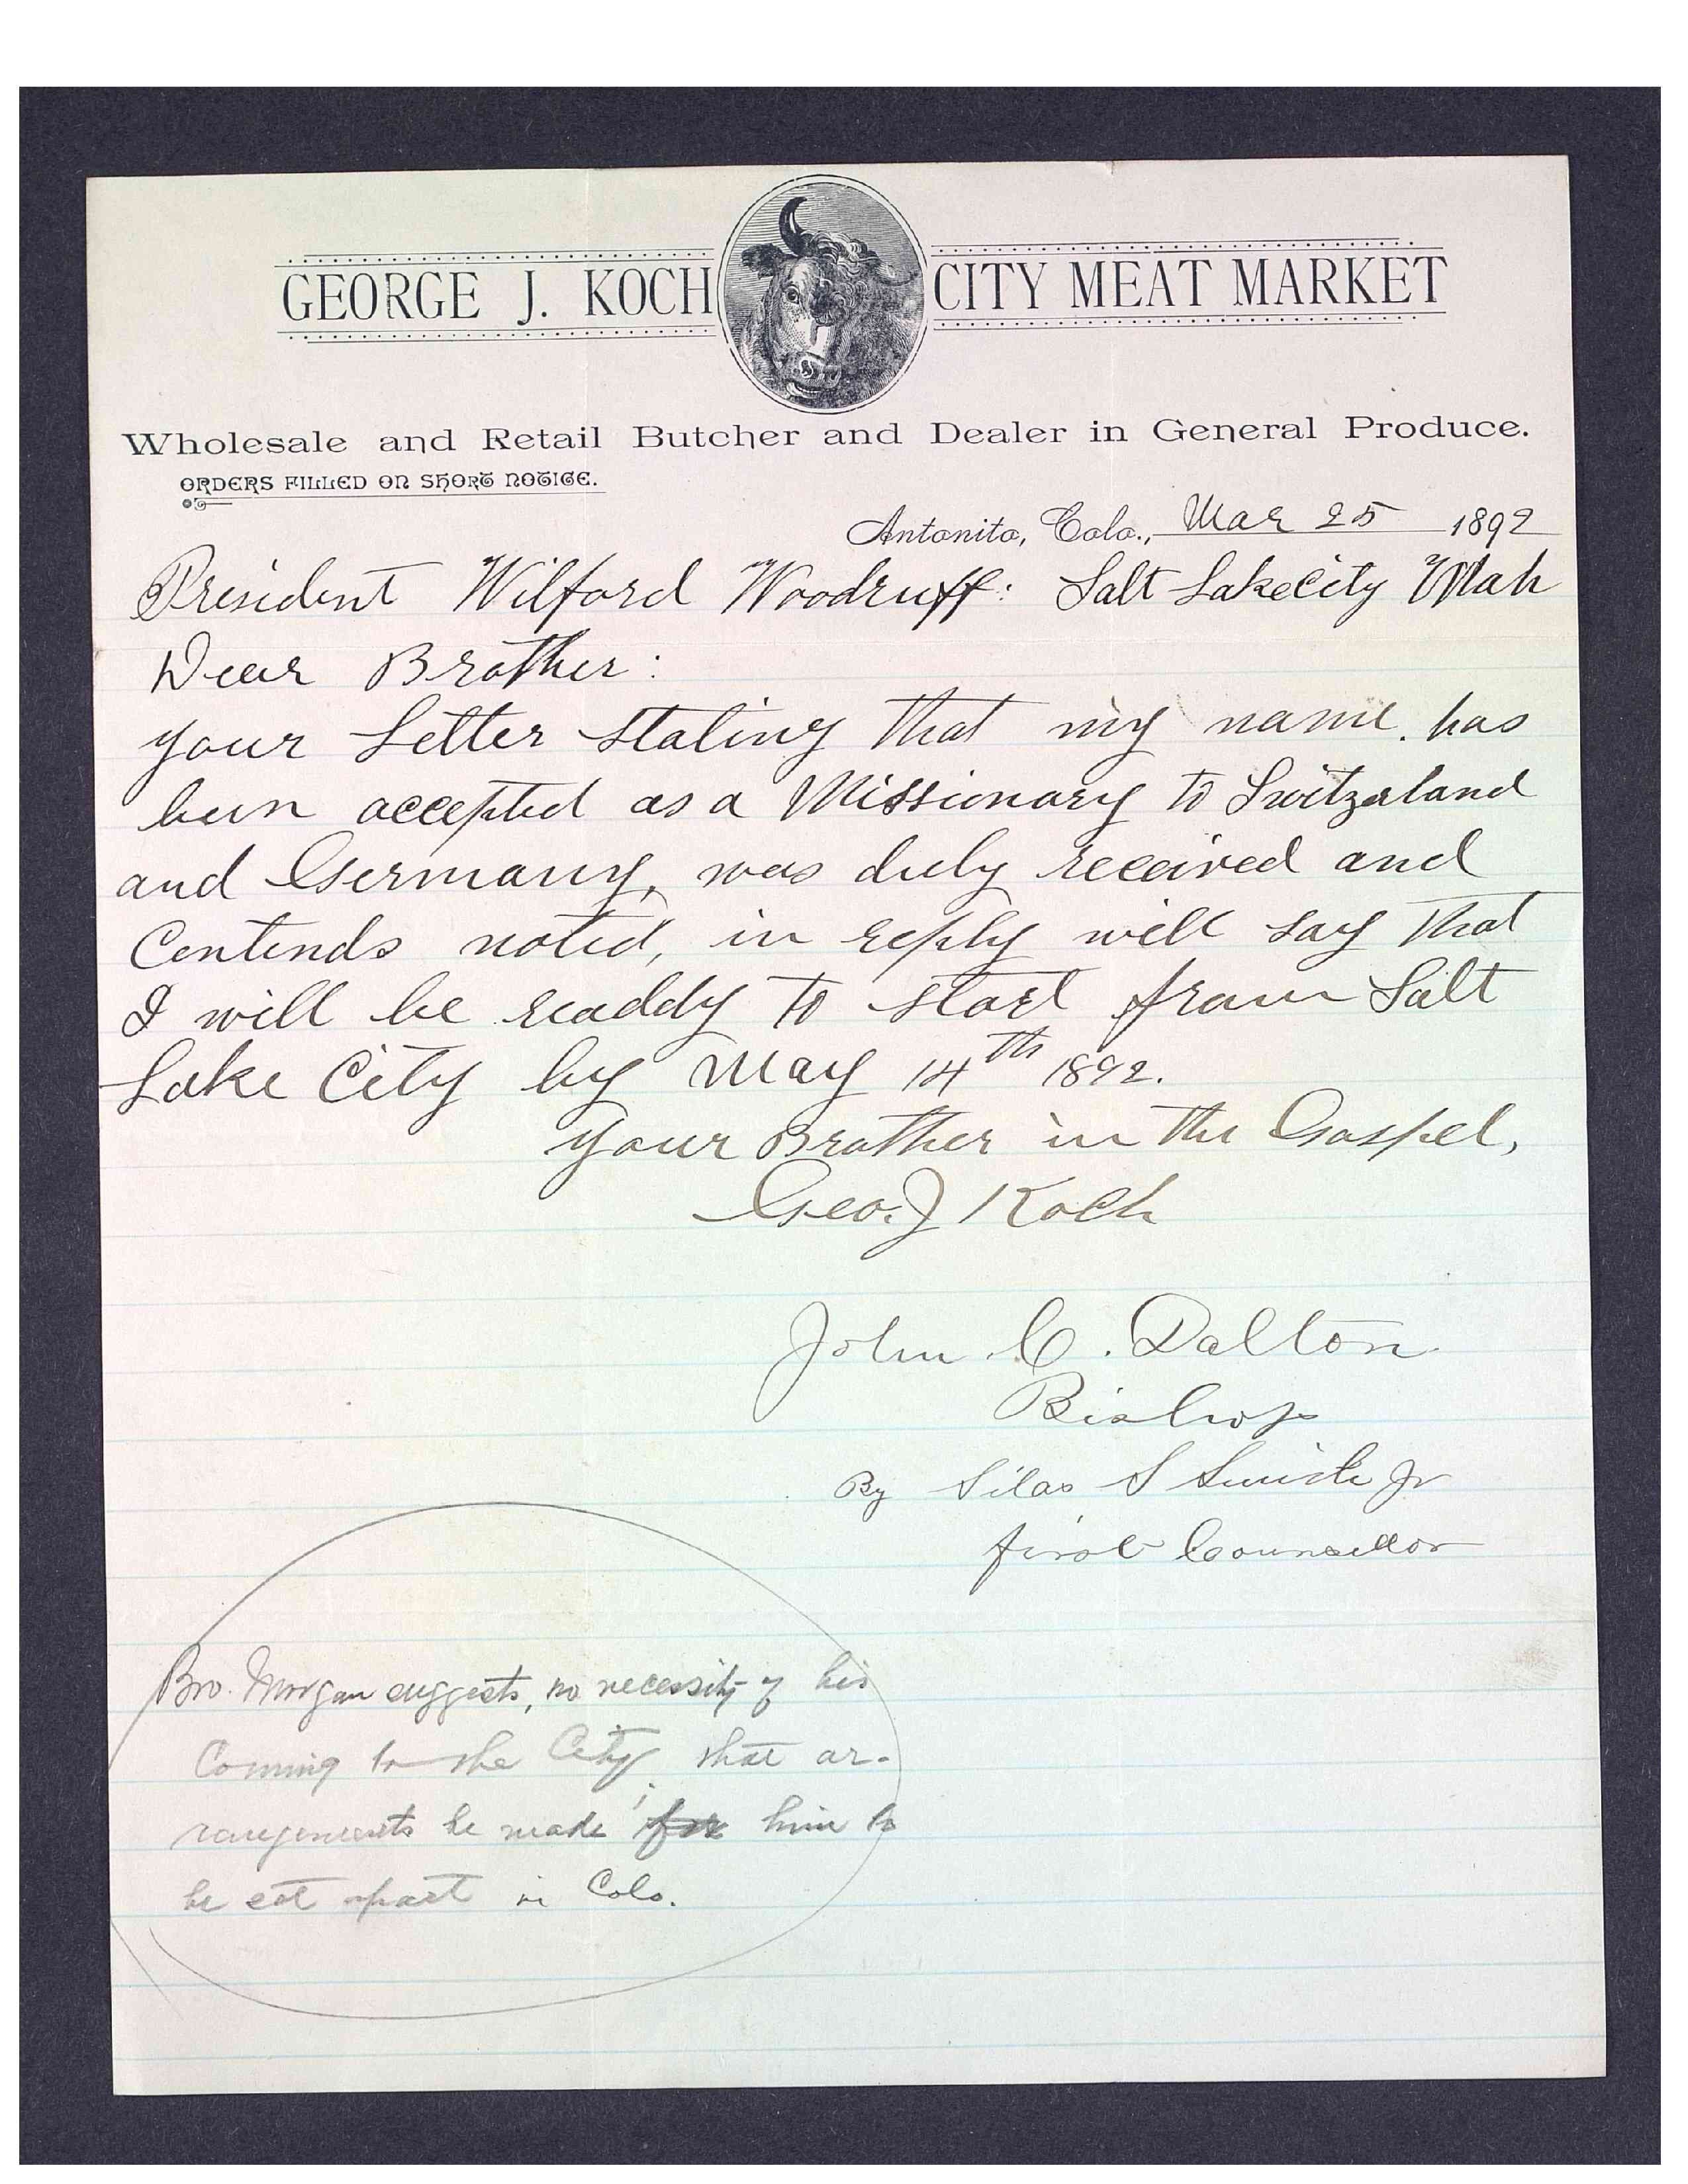 GEORGE J. KOCH CITY MEAT MARKET
Wholesale and Retail Butcher and Dealer in General Produce.
ORDERS FILLED ON SHORT NOTICE.
Antonito, Colo., Mar 25 1892
President Wilford Woodruff: Salt Lake City Utah
Dear Brother:
your Letter stating that my name has
been accepted as a Missionary to Switzerland
and Germany, was duly received and
Contends noted, in reply will say that
I will be readdy to start from Salt
Lake City by May 14th 1892.
your Brother in the Gospel,
Geo. J Koch
John C. Dalton
Bishop
By Silas S Smith Jr
first Counsellor
Bro. Morgan suggests, no necessity of his
Coming to the City, that ar-
rangements be made for him to
be set apart in Colo.